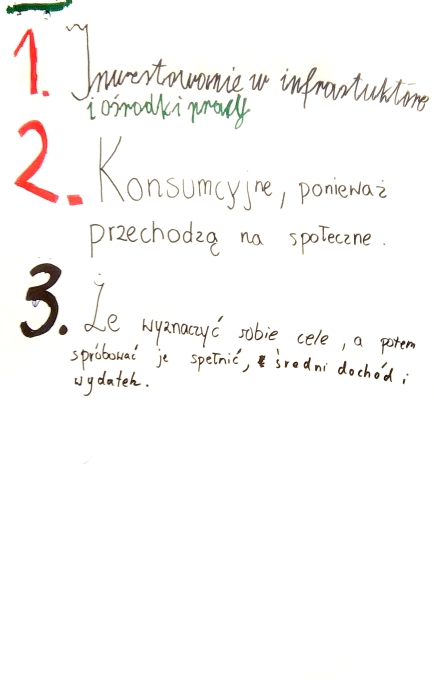 1. Inwestowanie w infrastuktórę
i ośrodki pracy
2. Konsumcyjne, ponieważ
przechodzą na społeczne.
3. Że wyznaczyć sobie cele, a potem
spróbować je spełnić, średni dochód i
wydatek.